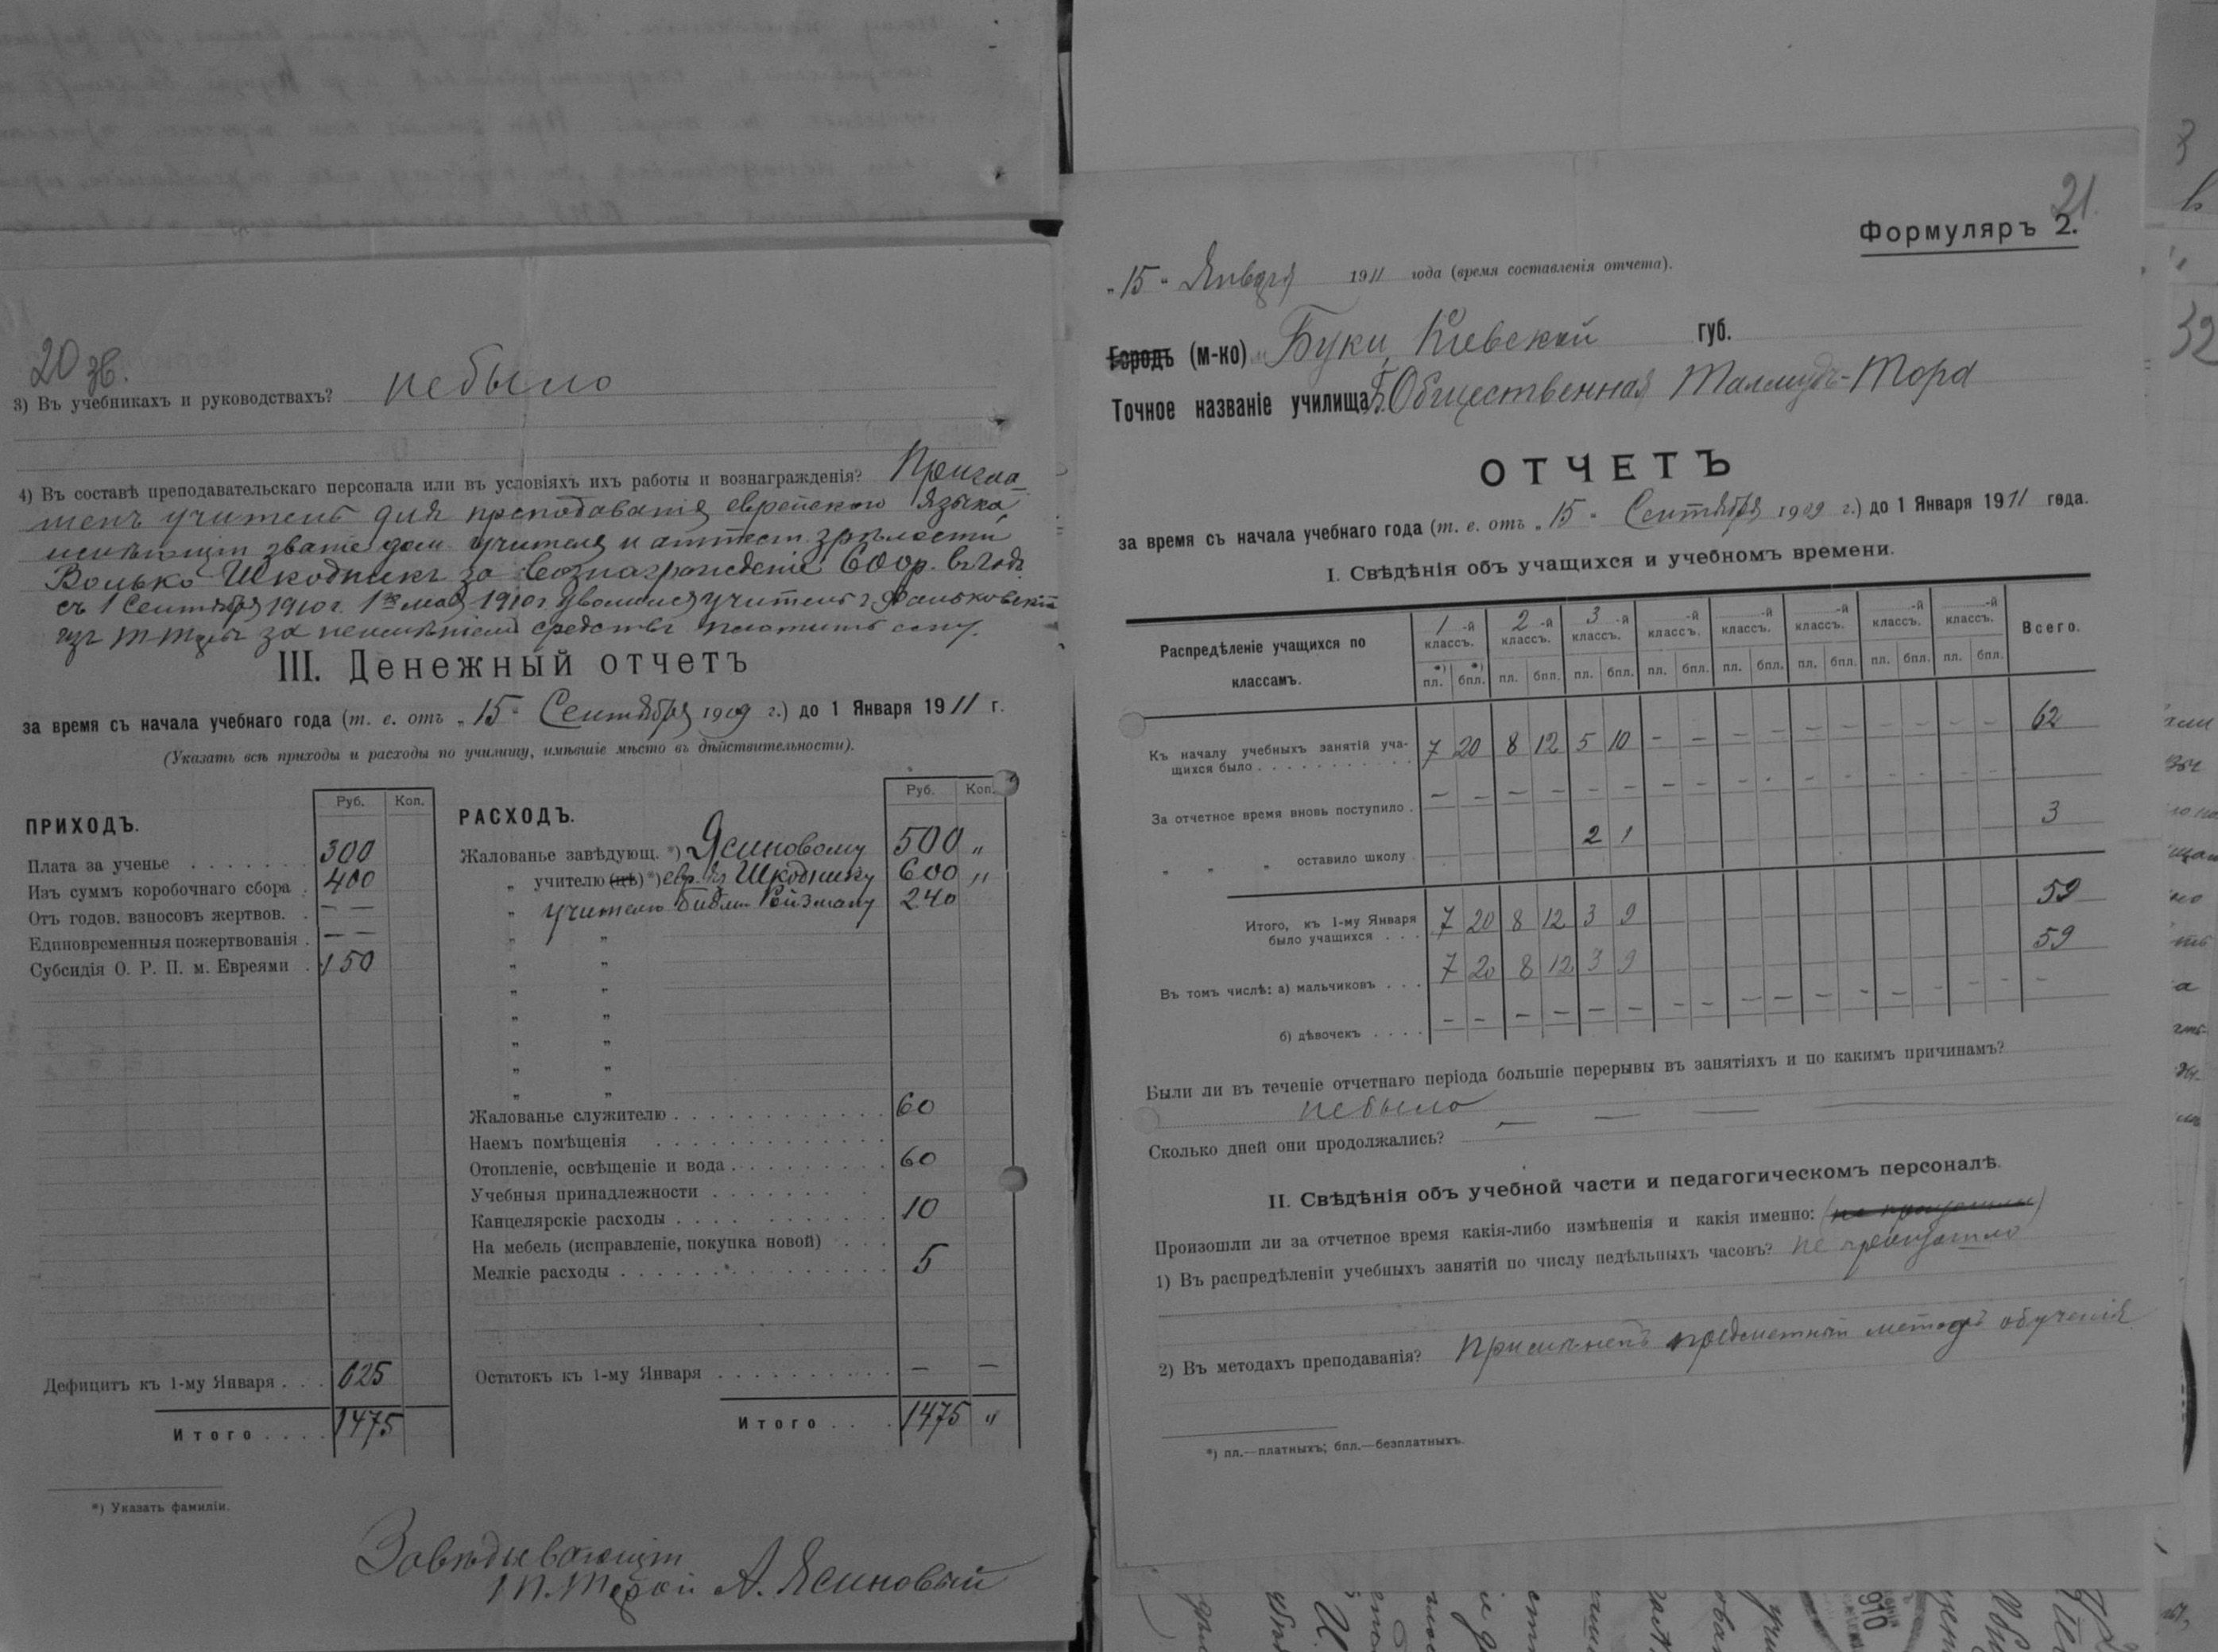 20 об.
3) Въ учебникахъ и руководствахъ? небыло
4) Въ составѣ преподавательскаго персонала или въ условіяхъ ихъ работы и вознагражденія? Пригла-
шенъ учитель для преподаванія еврейского языка,
имѣющій званіе дом. учителя и аттест. зрѣлости
Волько Шкодникъ за вознагражденіе 600р. въ годъ
съ 1 Сентября 1910 г. 1го мая 1910 г. уволился учитель г.
изъ за неимѣніемъ средствъ платить ему.
III. Денежный отчетъ
за время съ начала учебнаго года (т. е. отъ „15“ Сентября 1909 г.) до 1 Января 1911 г.
(Указать всѣ приходы и расходы по училищу, имѣвшіе мѣсто въ дѣйствительности).
ПРИХОДЪ. Руб. Коп.
Плата за ученье 300
Изъ суммъ коробочнаго сбора 400
Отъ годов. взносовъ жертвов. — —
Единовременныя пожертвованія — —
Субсидія О. Р. П. м. Евреями 150
Дефицитъ къ 1-му Января 625
Итого 1475
РАСХОДЪ. Руб. Коп.
Жалованье завѣдующ. *) Ясиновому 500 „
„ учителю (цѣ) *) евр. яз Шкоднику 600 „
„ учителю Библи Ройзману 240
„ „
„ „
„ „
„ „
„ „
„ „
„ „
Жалованье служителю 60
Наемъ помѣщенія
Отопленіе, освѣщеніе и вода 60
Учебныя принадлежности
Канцелярскіе расходы 10
На мебель (исправленіе, покупка новой)
Мелкіе расходы 5
Остатокъ къ 1-му Января — —
Итого 1475 „
*) Указать фамиліи.
Завѣдывающій
Т. Торой А. Ясиновый
21.
Формуляръ 2.
„15“ Января 1911 года (время составленія отчета).
Городъ (м-ко) Буки, Кіевской губ.
Точное названіе училища Общественная Талмудъ-Тора
ОТЧЕТЪ
за время съ начала учебнаго года (т. е. отъ „15“ Сентября 1909 г.) до 1 Января 1911 года.
I. Свѣдѣнія объ учащихся и учебномъ времени.
Распредѣленіе учащихся по классамъ. 1-й классъ. 2-й классъ. 3-й классъ. -й классъ. -й классъ. -й классъ. -й классъ. -й классъ. Всего.
*) пл. *) бпл. пл. бпл. пл. бпл. пл. бпл. пл. бпл. пл. бпл. пл. бпл. пл. бпл.
Къ началу учебныхъ занятій уча-
щихся было 7 20 8 12 5 10 — — — — — — — — — — 62
За отчетное время вновь поступило — — — — — — — — — — — — — — — —
„ „ „ оставило школу 2 1 3
Итого, къ 1-му Января
было учащихся 7 20 8 12 3 9 59
Въ томъ числѣ: а) мальчиковъ 7 20 8 12 3 9 59
б) дѣвочекъ — — — — — — — — — — — — — — — — —
Были ли въ теченіе отчетнаго періода большіе перерывы въ занятіяхъ и по какимъ причинамъ?
небыло
Сколько дней они продолжались? — — —
II. Свѣдѣнія объ учебной части и педагогическомъ персоналѣ.
Произошли ли за отчетное время какія-либо измѣненія и какія именно:
1) Въ распредѣленіи учебныхъ занятій по числу недѣльныхъ часовъ? не произошло
2) Въ методахъ преподаванія? Примѣненъ предметный методъ обученія
*) пл.—платныхъ; бпл.—безплатныхъ.
32
910